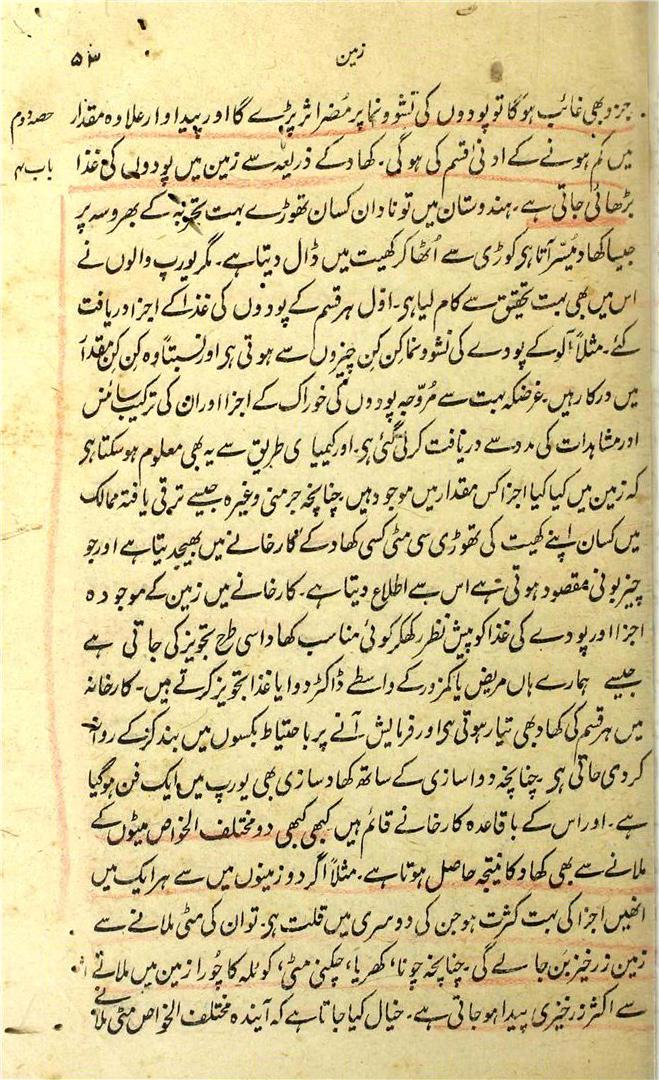 زمین
۵۳
حصہ دوم
باب ۴
جزو بھی غائب ہوگا تو پودوں کی نشوونما پر مُضر اثر پڑے گا اور پیداوار علاوہ مقدار
میں کم ہونے کے ادنیٰ قسم کی ہوگی۔ کھاد کے ذریعہ سے زمین میں پودوں کی غذا
بڑھائی جاتی ہے۔ ہندوستان میں تو نادان کسان تھوڑے بہت تجربہ کے بھروسہ پر
جیسا کھاد میسّر آتا ہی کوڑی سے اُٹھا کر کھیت میں ڈال دیتا ہے۔ مگر یورپ والوں نے
اس میں بھی بہت تحقیق سے کام لیا ہی۔ اوّل ہر قسم کے پودوں کی غذا کے اجزا دریافت
کئے۔ مثلاً آلو کے پودے کی نشوونما کِن کِن چیزوں سے ہوتی ہی اور نسبتاً وہ کِن کِن مقدار
میں درکار ہیں۔ غرضکہ بہت سے مُروّجہ پودوں کی خوراک کے اجزا اور ان کی ترکیب سائنس
اور مشاہدات کی مدد سے دریافت کرلی گئی ہی۔ اور کیمیای طریق سے یہ بھی معلوم ہوسکتا ہی
کہ زمین میں کیا کیا اجزا کس مقدار میں موجود ہیں۔ چنانچہ جرمنی وغیرہ جیسے ترقی یافتہ ممالک
میں کسان اپنے کھیت کی تھوڑی سی مٹی کسی کھاد کے کارخانے میں بھیجدیتا ہے اور جو
چیز بونی مقصود ہوتی ہے اس سے اطلاع دیتا ہے۔ کارخانے میں زمین کے موجودہ
اجزا اور پودے کی غذا کو پیش نظر رکھکر کوئی مناسب کھاد اسی طرح تجویز کی جاتی ہے
جیسے ہمارے ہاں مریض یا کمزور کے واسطے ڈاکٹر دوا یا غذا تجویز کرتے ہیں۔ کارخانہ
میں ہر قسم کی کھاد بھی تیار ہوتی ہی اور فرمایش آنے پر باحتیاط بکسوں میں بند کرکے روانہ
کردی جاتی ہی۔ چنانچہ دواسازی کے ساتھ کھاد سازی بھی یورپ میں ایک فن ہوگیا
ہے۔ اور اس کے باقاعدہ کارخانے قائم ہیں کبھی کبھی دو مختلف الخواص مٹیوں کے
ملانے سے بھی کھاد کا نتیجہ حاصل ہوتا ہے۔ مثلاً اگر دو زمینوں میں سے ہر ایک میں
انھیں اجزا کی بہت کثرت ہو جن کی دوسری میں قلت ہی۔ تو ان کی مٹی ملانے سے
زمین زرخیز بَن جائے گی۔ چنانچہ چونا، کھریا، چکنی مٹی، کوئلہ کا چُورا زمین میں ملانے
سے اکثر زرخیزی پیدا ہوجاتی ہے۔ خیال کیا جاتا ہے کہ آیندہ مختلف الخواص مٹی ملانے